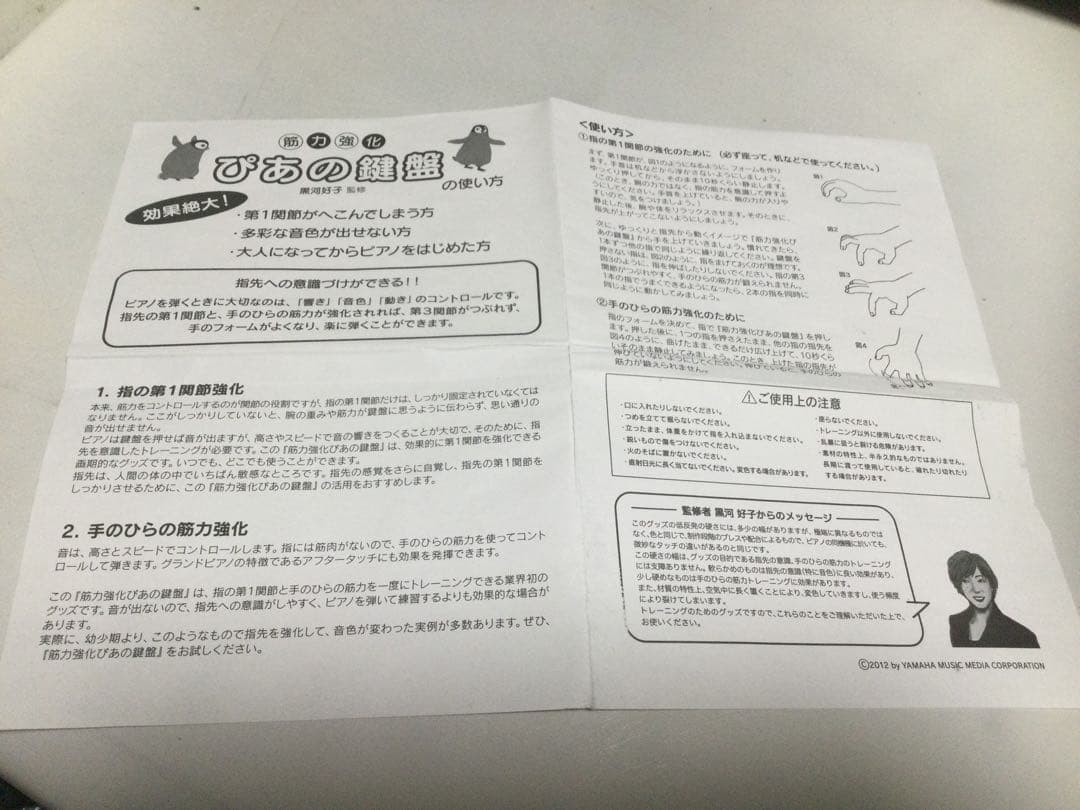 筋力強化
ぴあの鍵盤
の使い方
黒河好子 監修
効果絶大！
・第1関節がへこんでしまう方
・多彩な音色が出せない方
・大人になってからピアノをはじめた方
指先への意識づけができる！！
ピアノを弾くときに大切なのは、「響き」「音色」「動き」のコントロールです。
指先の第1関節と、手のひらの筋力が強化されれば、第3関節がつぶれず、
手のフォームがよくなり、楽に弾くことができます。
1. 指の第1関節強化
本来、筋力をコントロールするのが関節の役割ですが、指の第1関節だけは、しっかり固定されていなくては
なりません。ここがしっかりしていないと、腕の重みや筋力が鍵盤に思うように伝わらず、思い通りの
音が出せません。
ピアノは鍵盤を押せば音が出ますが、高さやスピードで音の響きをつくることが大切で、そのために、指
先を意識したトレーニングが必要です。この『筋力強化ぴあの鍵盤』は、効果的に第1関節を強化できる
画期的なグッズです。いつでも、どこでも使うことができます。
指先は、人間の体の中でいちばん敏感なところです。指先の感覚をさらに自覚し、指先の第1関節を
しっかりさせるために、この『筋力強化ぴあの鍵盤』の活用をおすすめします。
2. 手のひらの筋力強化
音は、高さとスピードでコントロールします。指には筋肉がないので、手のひらの筋力を使ってコント
ロールして弾きます。グランドピアノの特徴であるアフタータッチにも効果を発揮できます。
この『筋力強化ぴあの鍵盤』は、指の第1関節と手のひらの筋力を一度にトレーニングできる業界初の
グッズです。音が出ないので、指先への意識がしやすく、ピアノを弾いて練習するよりも効果的な場合が
あります。
実際に、幼少期より、このようなもので指先を強化して、音色が変わった実例が多数あります。ぜひ、
『筋力強化ぴあの鍵盤』をお試しください。
＜使い方＞
①指の第1関節の強化のために （必ず座って、机などで使ってください。）
まず、第1関節が、図1のようになるように、フォームを作り
ます。手首は机などから浮かさないようにしましょう。
ゆっくり押してから、そのまま10秒くらい静止します。
（このとき、腕の力ではなく、指の筋力を意識して押すよ
うにしてください。手首を上げていると、腕の力が入りや
すいので、気をつけましょう。）
静止した後、腕や体をリラックスさせます。そのときに、
指先が上がってこないようにしましょう。
図1
次に、ゆっくりと指先から動くイメージで『筋力強化ぴ
あの鍵盤』から手を上げていきましょう。慣れてきたら、
1本ずつ他の指で同じように繰り返してください。鍵盤を
押さない指は、図2のように、指をまげておくのが理想です。
図3のように、指を伸ばしたりしないでください。指の第3
関節がつぶれやすく、手のひらの筋力が鍛えられません。
1本の指でうまくできるようになったら、2本の指を同時に
同じように動かしてみましょう。
図2
図3
②手のひらの筋力強化のために
指のフォームを決めて、指で『筋力強化ぴあの鍵盤』を押し
ます。押した後に、1つの指を押さえたまま、他の指の指先を
図4のように、曲げたまま、できるだけ広げ上げて、10秒くら
いそのまま静止してみましょう。このとき、上げた指の指先が
伸びていないようにしてください。伸びていると、手のひらの
筋力が鍛えられません。
図4
⚠ご使用上の注意
・口に入れたりしないでください。
・つめを立てて握らないでください。
・立ったまま、体重をかけて指を入れ込まないでください。
・鋭いもので傷をつけないでください。
・火のそばに置かないでください。
・直射日光に長く当てないでください。変色する場合があります。
・座らないでください。
・トレーニング以外に使用しないでください。
・乱暴に扱うと裂ける危険があります。
・素材の特性上、半永久的なものではありません。
長期に渡って使用していると、破れたり切れたり
する場合があります。
監修者 黒河 好子からのメッセージ
このグッズの低反発の硬さには、多少の幅がありますが、極端に異なるものでは
なく、色と同じで、制作段階のプレスや配合によるもので、ピアノの同機種に於いても、
微妙なタッチの違いがあるのと同じです。
この硬さの幅は、グッズの目的である指先の意識、手のひらの筋力のトレーニング
には支障ありません。軟らかめのものは指先の意識（特に音色）に良い効果があり、
少し硬めなものは手のひらの筋力トレーニングに効果があります。
また、材質の特性上、空気中に長く置くことにより、変色していきますし、使う頻度
により裂けてしまいます。
トレーニングのためのグッズですので、これらのことをご理解いただいた上で、
お使いください。
©2012 by YAMAHA MUSIC MEDIA CORPORATION